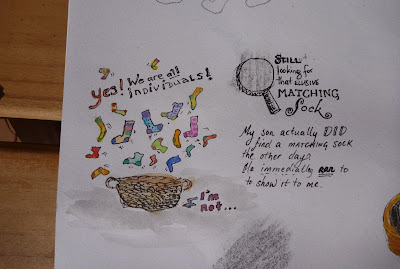 yes! We are all
individuals!
I'm
not...
STILL
looking for
that ELUSIVE
MATCHING
Sock
My son actually DID
find a MATCHING SOCK
the other day.
He immediatly ran to
to show it to me.